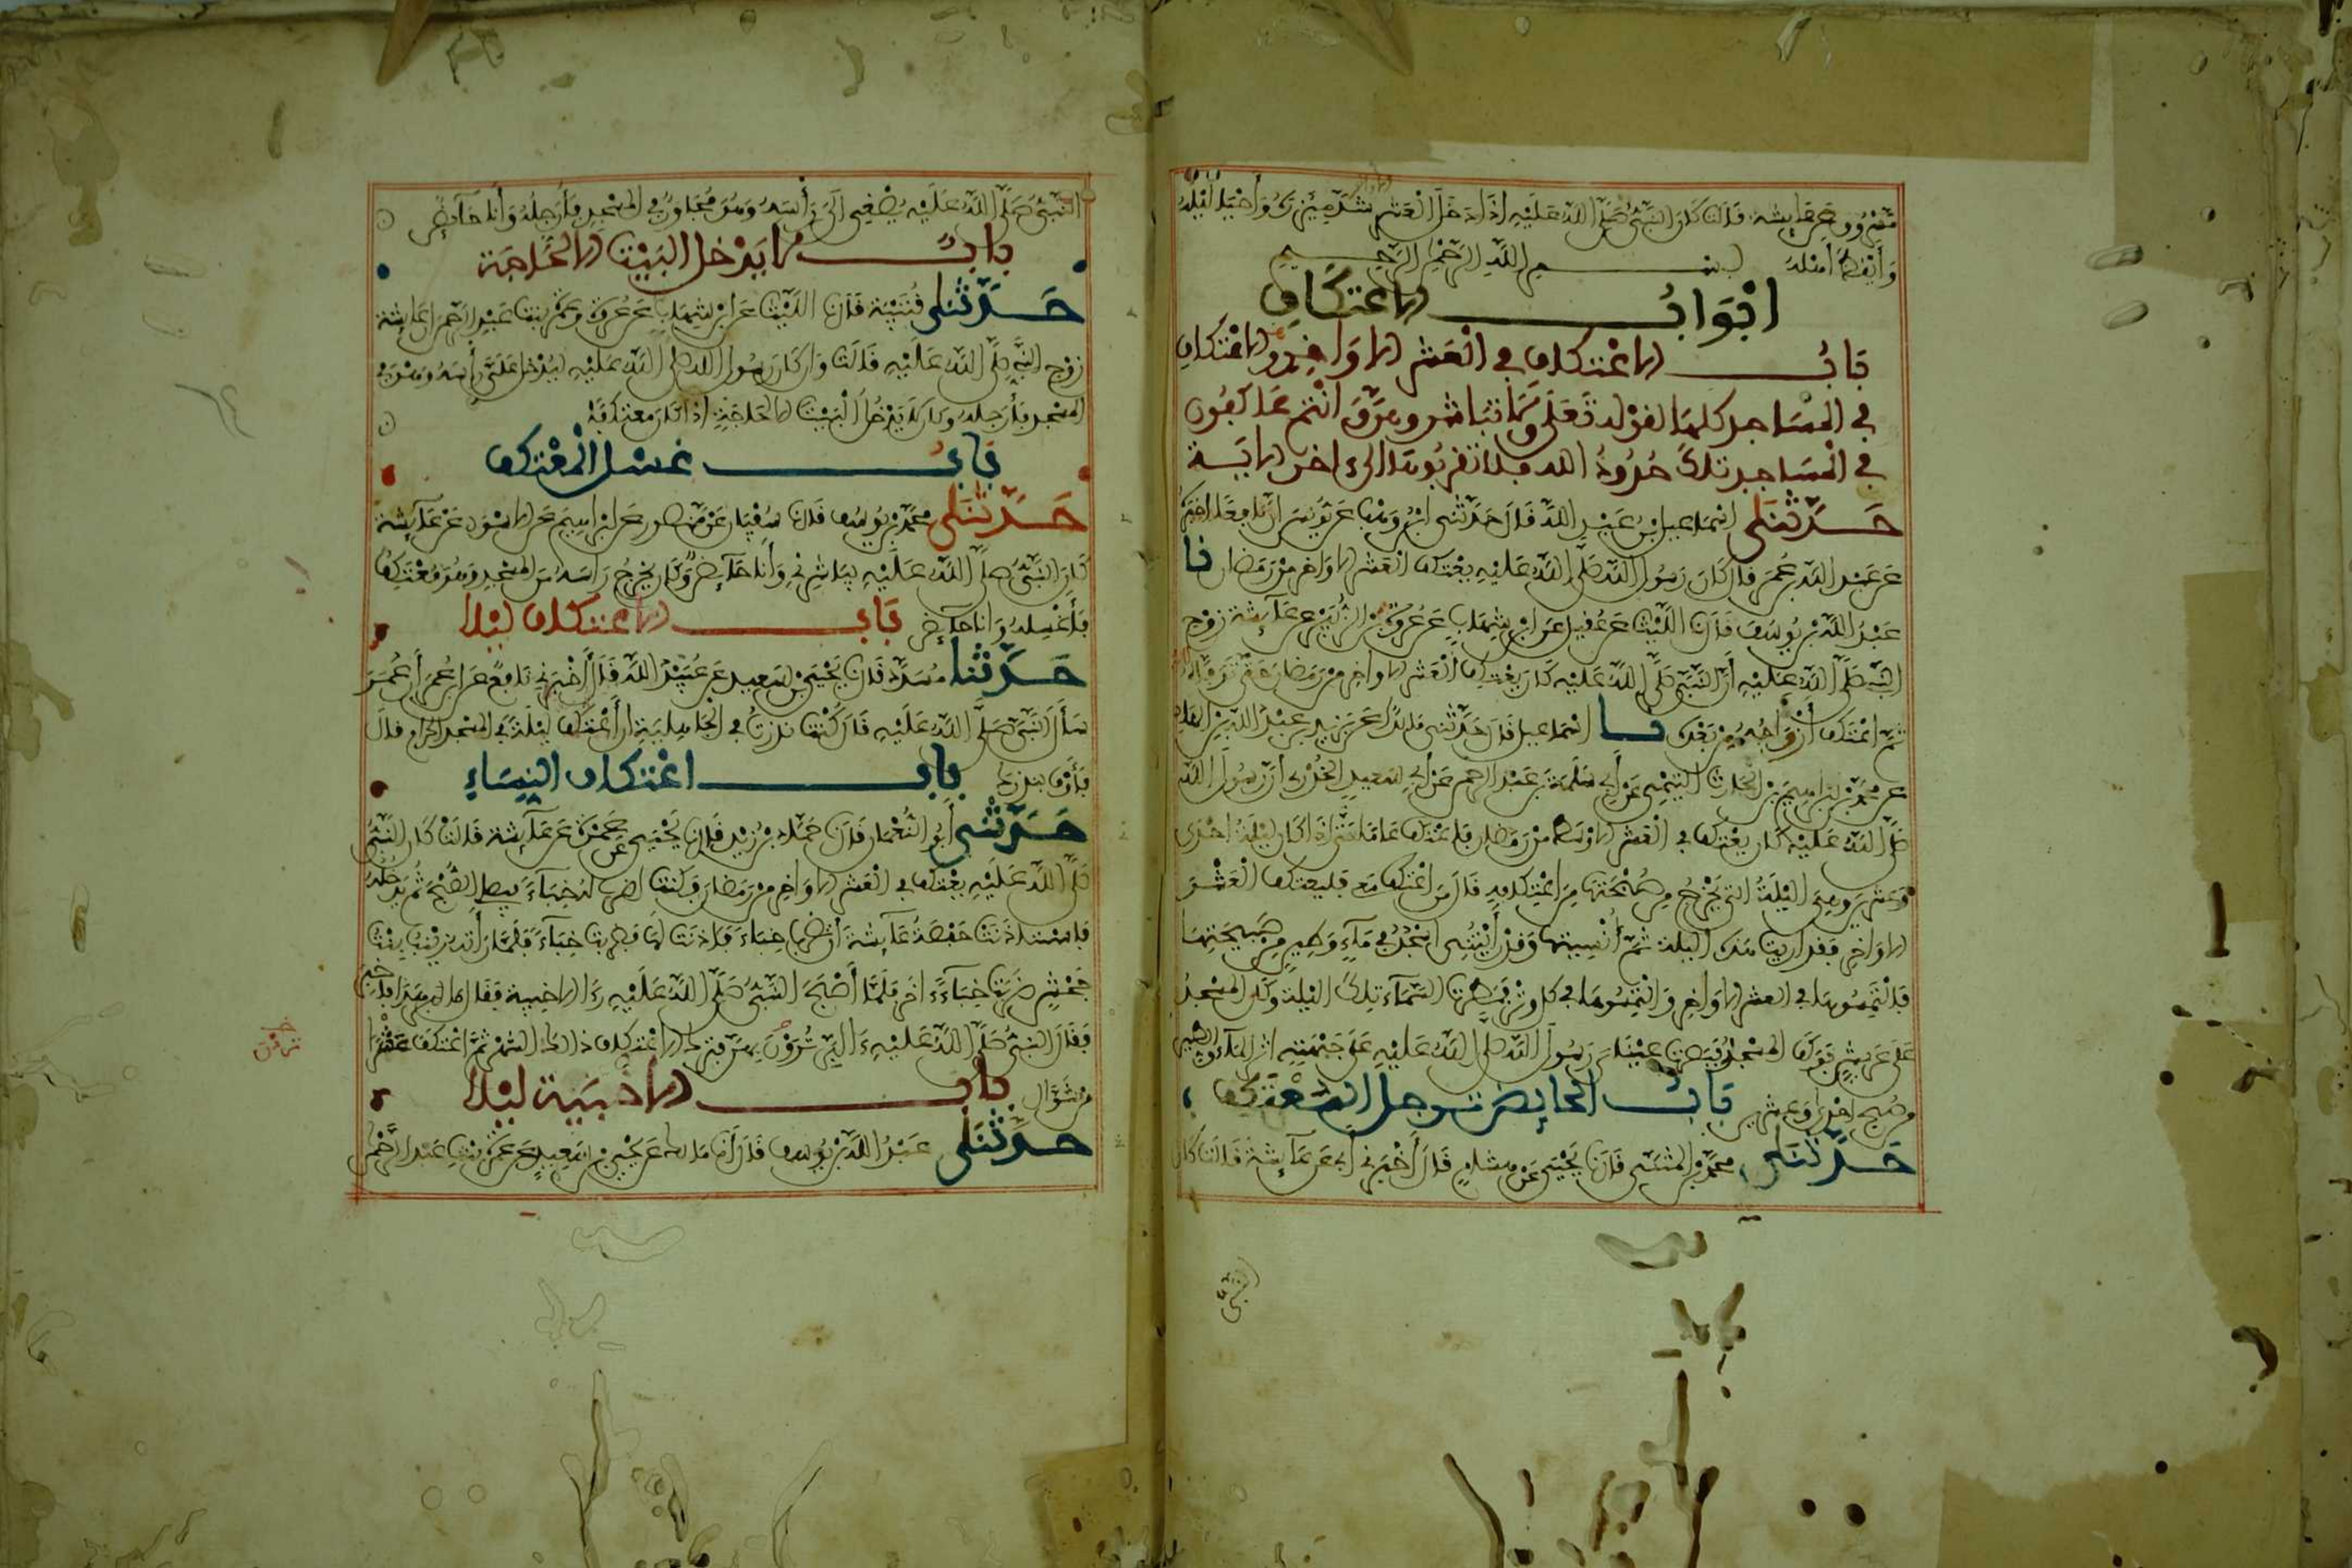 مسروق عن عايشة قالت كان النبي صلى الله عليه اذا دخل العشر شد ميزره وأحيا ليله
وأيقظ أهله بسم الله الرحمن الرحيم
ابواب الاعتكاف
باب الاعتكاف في العشر الاواخر والاعتكاف
في المساجد كلها لقوله تعلى ولا تباشروهن وانتم عاكفون
في المساجد تلك حدود الله فلا تقربوها الى اخر الاية
حدثنا اسماعيل بن عبد الله قال حدثني ابن وهب عن يونس أن نافعا اخبره
عن عبد الله بن عمر قال كان رسول الله صلى الله عليه يعتكف العشر الاواخر من رمضان نا
عبد الله بن يوسف قال نا الليث عن عقيل عن ابن شهاب عن عروة بن الزبير عن عآيشة زوج
النبي صلى الله عليه أن النبي صلى الله عليه كان يعتكف العشر الاواخر من رمضان حتى توفاه الله
ثم اعتكف أزواجه من بعده نا اسماعيل قال حدثني مالك عن يزيد بن عبد الله بن الهاد
عن محمد بن ابراهيم بن الحارث التيمي عن أبي سلمة بن عبد الرحمن عن أبي سعيد الخدري أن رسول الله
صلى الله عليه كان يعتكف في العشر الاوسط من رمضان فاعتكف عاما حتى اذا كان ليلة احدى
وعشرين وهي الليلة التي يخرج من صبيحتها من اعتكافه قال من اعتكف معي فليعتكف العشر
الاواخر فقد اريت هذه الليلة ثم أنسيتها وقد رأيتني اسجد في مآء وطين من صبيحتها
فالتمسوها في العشر الاواخر والتمسوها في كل وتر فمطرت السمآء تلك الليلة وكان المسجد
على عريش فوكف المسجد فبصرت عيناي رسول الله صلى الله عليه على جبهته اثر المآء والطين
من صبح احدى وعشرين باب الحايض ترجل المعتكف
حدثنا محمد بن المثنى قال نا يحيى عن هشام قال أخبرني أبي عن عآيشة قالت كان
النبي صلى الله عليه يصغي الي رأسه وهو مجاور في المسجد فأرجله وأنا حآيض
باب لا يدخل البيت الا لحاجة
حدثنا قتيبة قال نا الليث عن ابن شهاب عن عروة وعمرة بنت عبد الرحمن أن عايشة
زوج النبي صلى الله عليه قالت وان كان رسول الله صلى الله عليه ليدخل علي رأسه وهو في
المسجد فأرجله وكان لا يدخل البيت الا لحاجة اذا كان معتكفا
باب غسل المعتكف
حدثنا محمد بن يوسف قال نا سفيان عن منصور عن ابراهيم عن الاسود عن عآيشة
كان النبي صلى الله عليه يباشرني وأنا حآيض وكان يخرج راسه من المسجد وهو معتكف
فأغسله وانا حآيض باب الاعتكاف ليلا
حدثنا مسدد قال نا يحيى بن سعيد عن عبيد الله قال أخبرني نافع عن ابن عمر أن عمر
سأل النبي صلى الله عليه قال كنت نذرت في الجاهلية أن أعتكف ليلة في المسجد الحرام قال
فأوف بنذرك باب اعتكاف النساء
حدثني أبو النعمان قال نا حماد بن زيد قال نا يحيى عن عمرة عن عآيشة قالت كان النبي
صلى الله عليه يعتكف في العشر الاواخر من رمضان فكنت اضرب له خبآء فيصلي الصبح ثم يدخله
فاستاذنت حفصة عآيشة أن تضرب خباء فاذنت لها فضربت خباء فلما رأته زينب بنت
جحش ضربت خباء اخر فلما أصبح النبي صلى الله عليه رءا الاخبية فقال ما هذا فأخبر
فقال النبي صلى الله عليه ءالبر ترون بهن فترك الاعتكاف ذلك الشهر ثم اعتكف عشرا
من شوال باب الاخبية ليلا
حدثنا عبد الله بن يوسف قال أنا مالك عن يحيى بن سعيد عن عمرة بنت عبد الرحمن